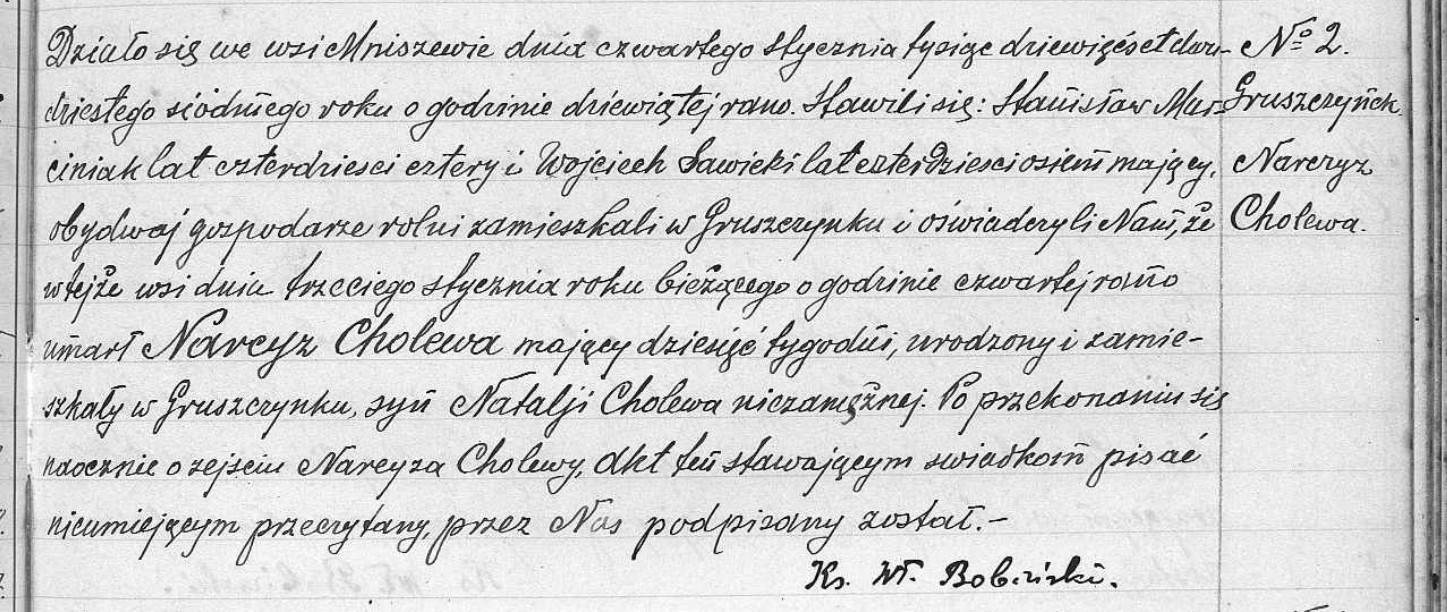 Działo się we wsi Mniszewie dnia czwartego stycznia tysiąc dziewięćset dwu-
dziestego siódmego roku o godzinie dziewiątej rano. Stawili się: Stanisław Mar-
ciniak lat czterdziesci cztery i Wojciech Sawicki lat czterdziesci osiem mający,
obydwaj gospodarze rolni zamieszkali w Gruszczynku i oświadczyli Nam, że
w tejże wsi dnia trzeciego stycznia roku bieżącego o godzinie czwartej rano
umarł Narcyz Cholewa mający dziesięć tygodni, urodzony i zamie-
szkały w Gruszczynku, syn Natalji Cholewa niezamężnej. Po przekonaniu się
naocznie o zejsciu Narcyza Cholewy, Akt ten stawającym swiadkom pisać
nieumiejącym przeczytany, przez Nas podpisany został.-
Ks. Wł. Bobiński.
№ 2.
Gruszczynek.
Narczyz
Cholewa.